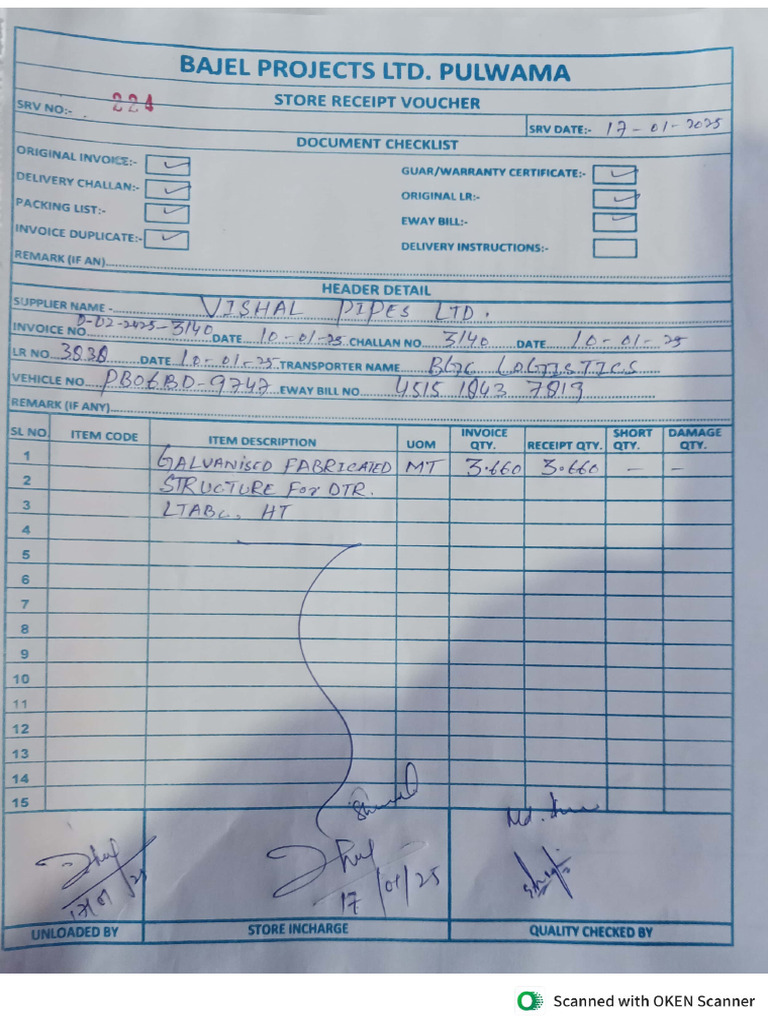 BAJEL PROJECTS LTD. PULWAMA
STORE RECEIPT VOUCHER
SRV NO:- 224
SRV DATE:- 17-01-2025
DOCUMENT CHECKLIST
ORIGINAL INVOICE:- ✓ GUAR/WARRANTY CERTIFICATE:- ✓
DELIVERY CHALLAN:- ✓ ORIGINAL LR:- ✓
PACKING LIST:- ✓ EWAY BILL:- ✓
INVOICE DUPLICATE:- ✓ DELIVERY INSTRUCTIONS:-
REMARK (IF AN)
HEADER DETAIL
SUPPLIER NAME - VISHAL PIPES LTD.
INVOICE NO 2025-3140 DATE 10-01-25 CHALLAN NO. 3140 DATE 10-01-25
LR NO. 3838 DATE 10-01-25 TRANSPORTER NAME
VEHICLE NO. PB06BD-9747 EWAY BILL NO 4515 1843 7819
REMARK (IF ANY)
SL NO. ITEM CODE ITEM DESCRIPTION UOM INVOICE QTY. RECEIPT QTY. SHORT QTY. DAMAGE QTY.
1 GALVANISED FABRICATED MT 3.660 3.660 - -
2 STRUCTURE FOR DTR.
3 LTABC, HT
4
5
6
7
8
9
10
11
12
13
14
15
17/01/25
UNLOADED BY STORE INCHARGE QUALITY CHECKED BY
Scanned with OKEN Scanner